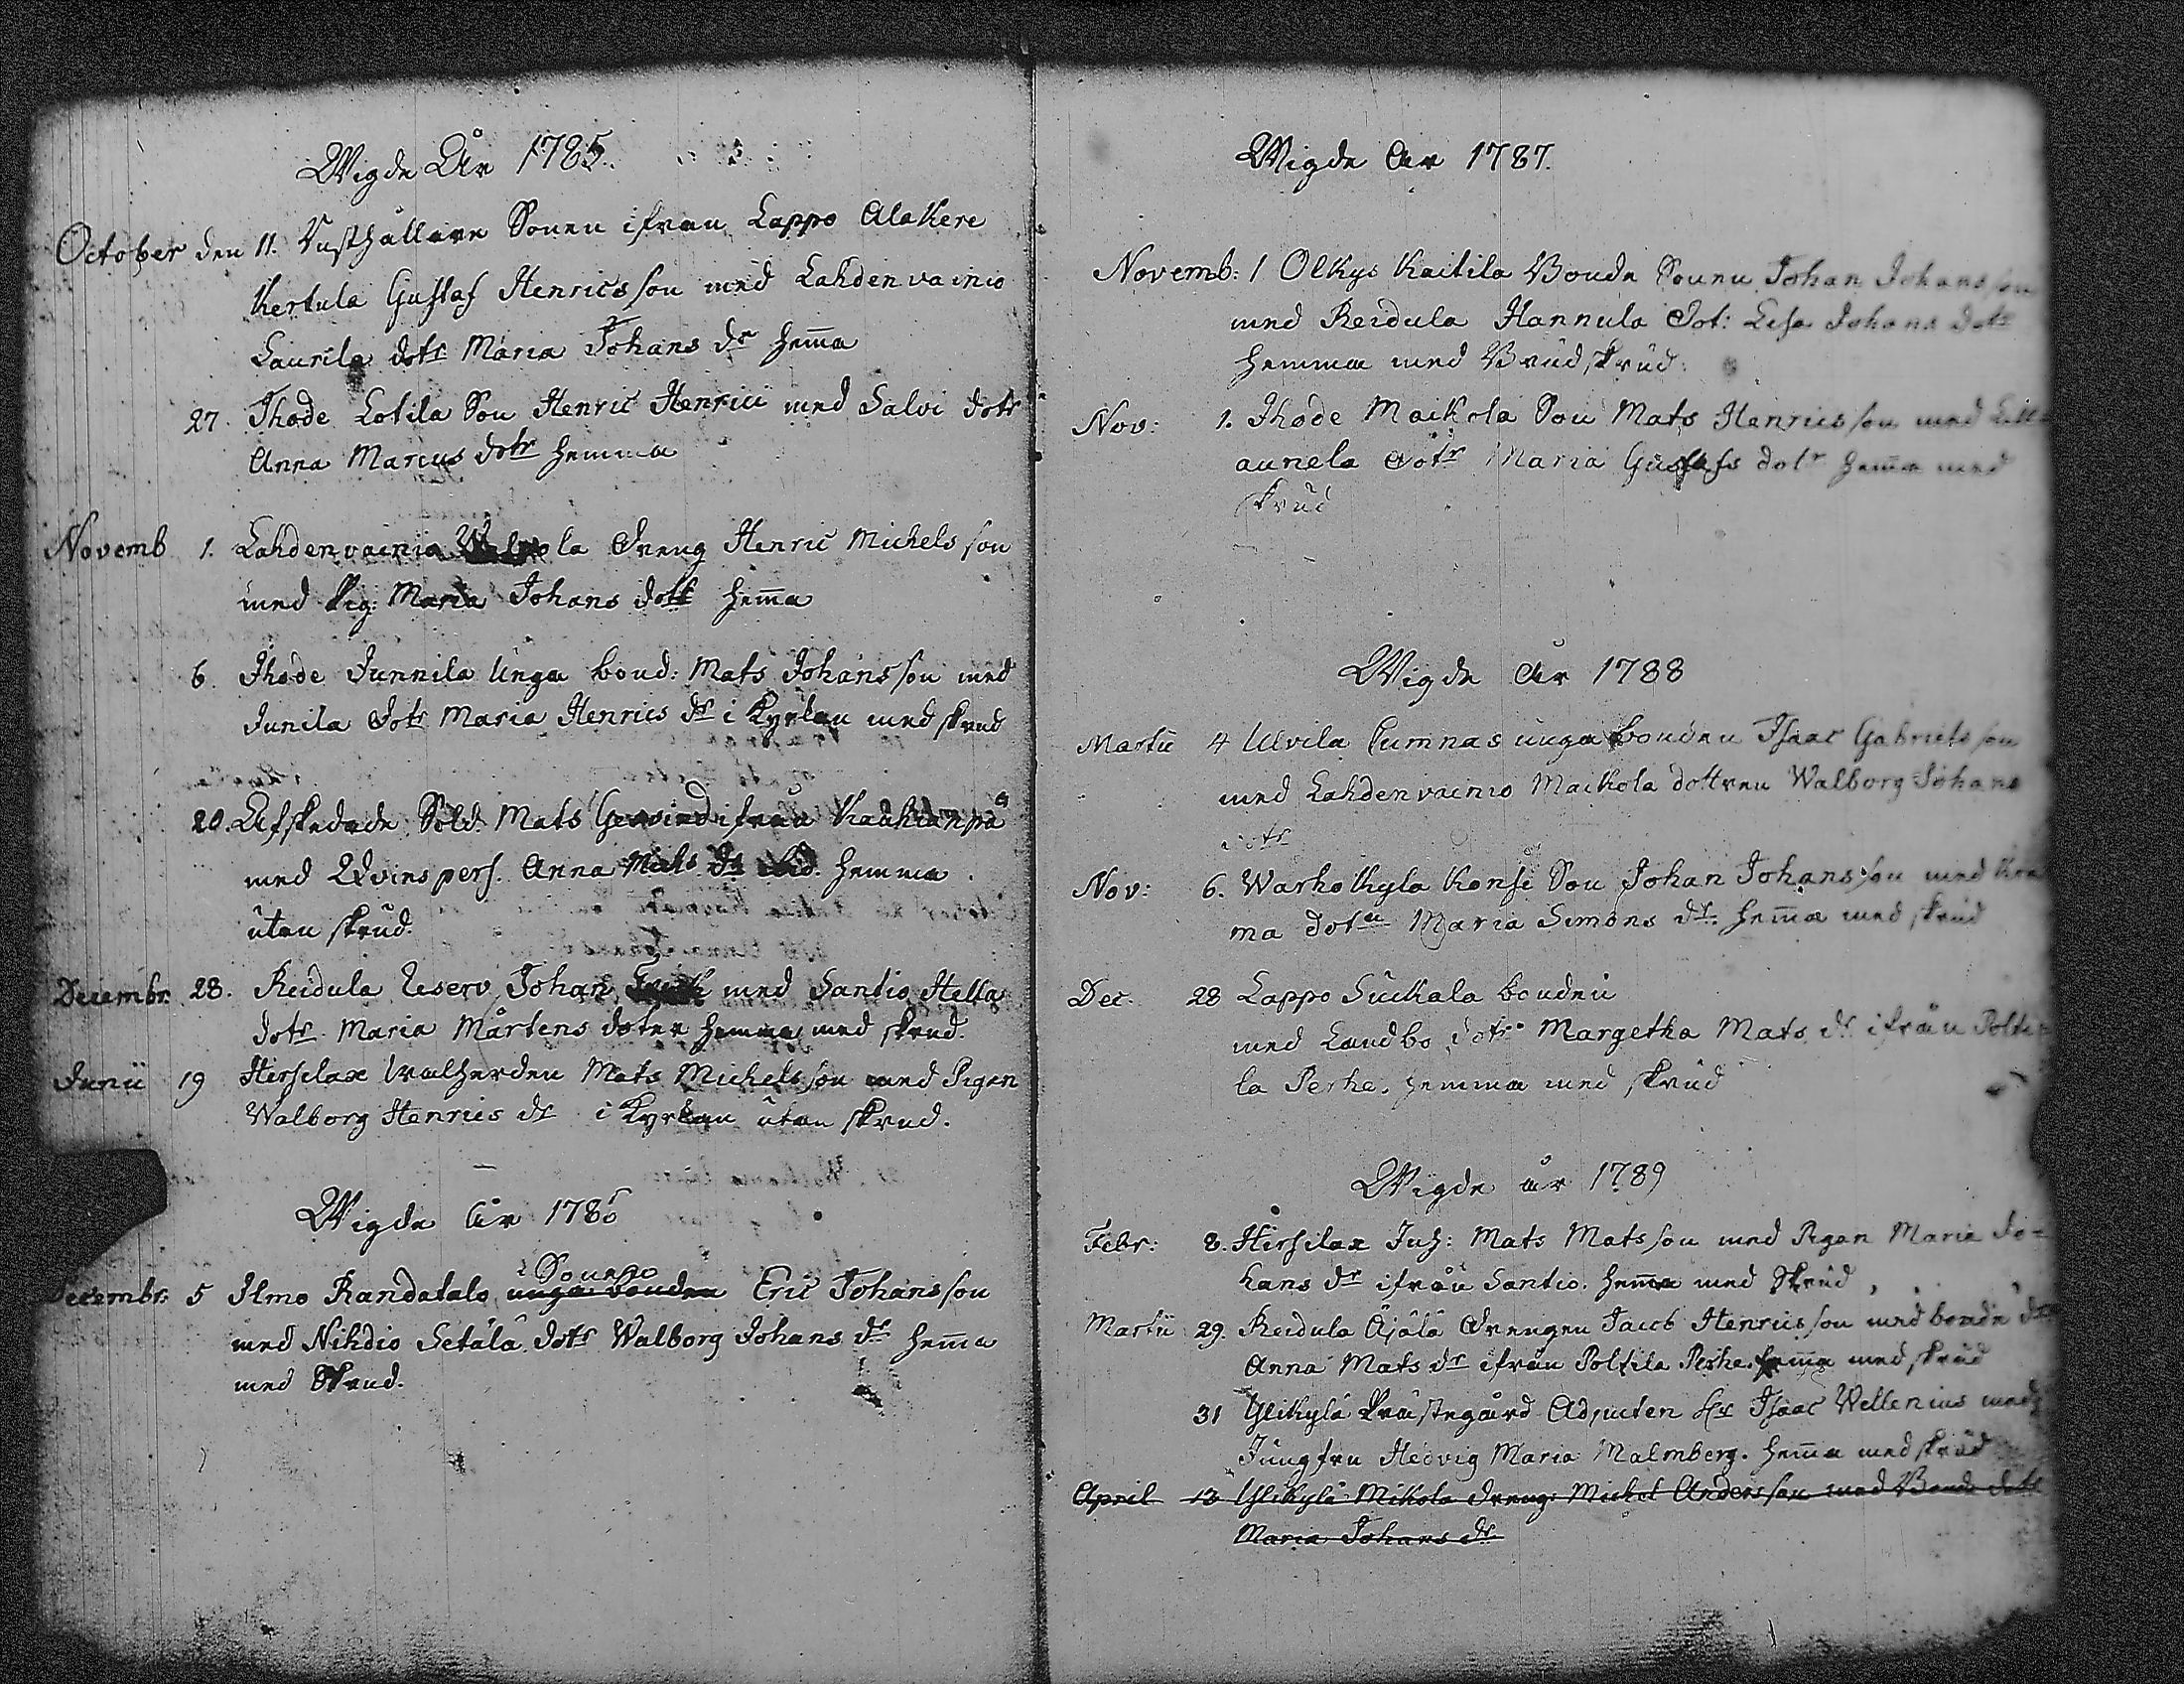 Wigde År 1785.
October den 11. Rusthållare Sonen ifrån Lappo Alakere
Kertula Gustaf Henricsson med Lahdenvainio
Laurila dotr Maria Johans dr hem̅a
27. Ihode Lotila Son Henric Henrici med Salvi dotr
Anna Marcus dotr hemma
Novemb 1. Lahdenvainio la Dreng Henric Michelsson
med Pig: Maria Johans dotr hem̅a
6. Ihode Junnila Unga bond: Mats Johansson med
Junila dotr Maria Henrics dr i Kyrkan med skrud
20. Afskedade Sold. Mats ifrån Kauhianpä
med Qvinspers. Anna Mats dr ibid. hemma
utan skrud.
Decembr. 28. Reidula Reserv Johan med Santio Hella
dotr. Maria Mårtens doter hemma med skrud.
Junii 19 Hirfilax Walherden Mats Michelsson med Pigan
Walborg Henrics dr i Kyrkan utan skrud.
Wigde År 1786
Sonen
Decembr: 5 Ilmo Randatalo unga bonden Eric Johansson
med Nihdio Setälä dotr Walborg Johans dr hem̅a
med Skrud.
Wigde År 1787.
Novemb: 1 Olkys Kaitila Bonde Sonen Johan Johansson
med Reidula Hannula Dot: Lisa Johans dotr
hemma med Brudskrud.
Nov: 1. Ihode Maikola Son Mats Henricsson med Lill-
aunela dotr Maria Gustafs dotr hem̅a med
skrud
Wigde År 1788
Martii 4 Ulvila Cumnas unga bonden Isaac Gabrielsson
med Lahdenvainio Maikola dottren Walborg Johans
dotr
Nov: 6. Warhokyla Konsi Son Johan Johansson med
ma doten Maria Simons dr. hem̅a med skrud
Dec. 28 Lappo Suckala bonden
med Landbo dotr. Margetha Mats dr ifrån Polti-
la Perhe. hemma med skrud
Wigde år 1789
Febr: 8. Hirfilax Inh: Mats Matsson med Pigan Maria Jo-
hans dr ifrån Santio. hem̅a med Skrud
Martii 29. Reidula Äjälä Drengen Jacob Henricsson med bonde
Anna Mats dr ifrån Poltila Perhe. hem̅a med skrud
31 Ylikylä Prästegård Adjuncten Hr Isaac Wellenius med
Jungfru Hedvig Maria Malmberg. hem̅a med skrud
April 12 Ylikylä Mikola dreng: Michel Andersson med Bonde dotr
Maria Johans dr